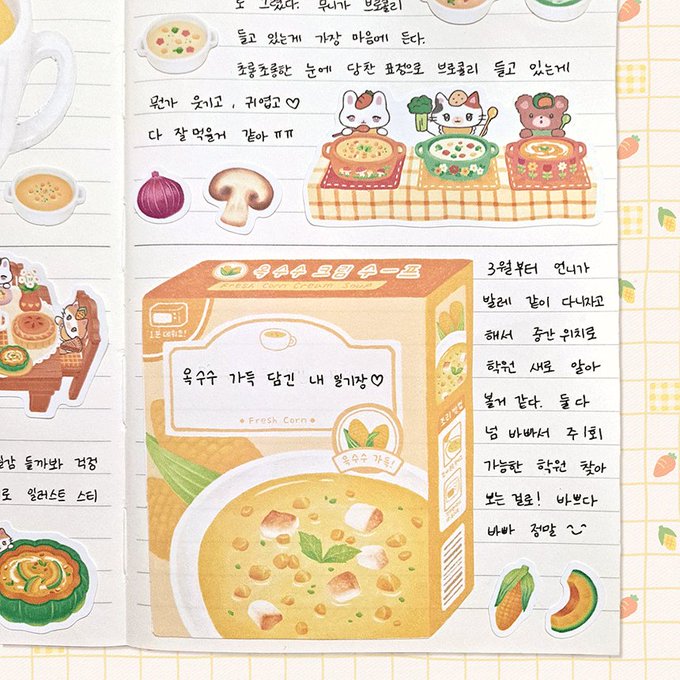 또 그렸다. 무니가 브로콜리
들고 있는게 가장 마음에 든다.
초롱초롱한 눈에 당찬 표정으로 브로콜리 들고 있는게
뭔가 웃기고, 귀엽고♡
다 잘 먹을거 같아 ㅠㅠ
옥수수 크림 수-프
Fresh Corn Cream Soup
1분 데워요!
옥수수 가득 담긴 내 일기장♡
Fresh Corn
옥수수 가득!
조리 방법
3월부터 언니가
발레 같이 다니자고
해서 중간 위치로
학원 새로 알아
볼거 같다. 둘 다
넘 바빠서 주 1회
가능한 학원 찾아
보는 걸로! 바쁘다
바빠 정말
들까봐 걱정
로 일러스트 스티